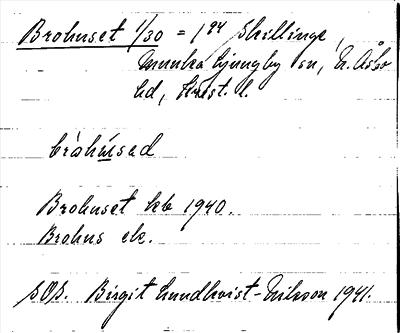 Brohuset 1/30 = 1 24 Skillinge,
Munka Ljungby sn, N. Åsbo
hd, Krist. l.
bròhúsed
Brohuset kb 1940.
Brohus ek.
SOS. Birgit Lundkvist-Eriksson 1941.